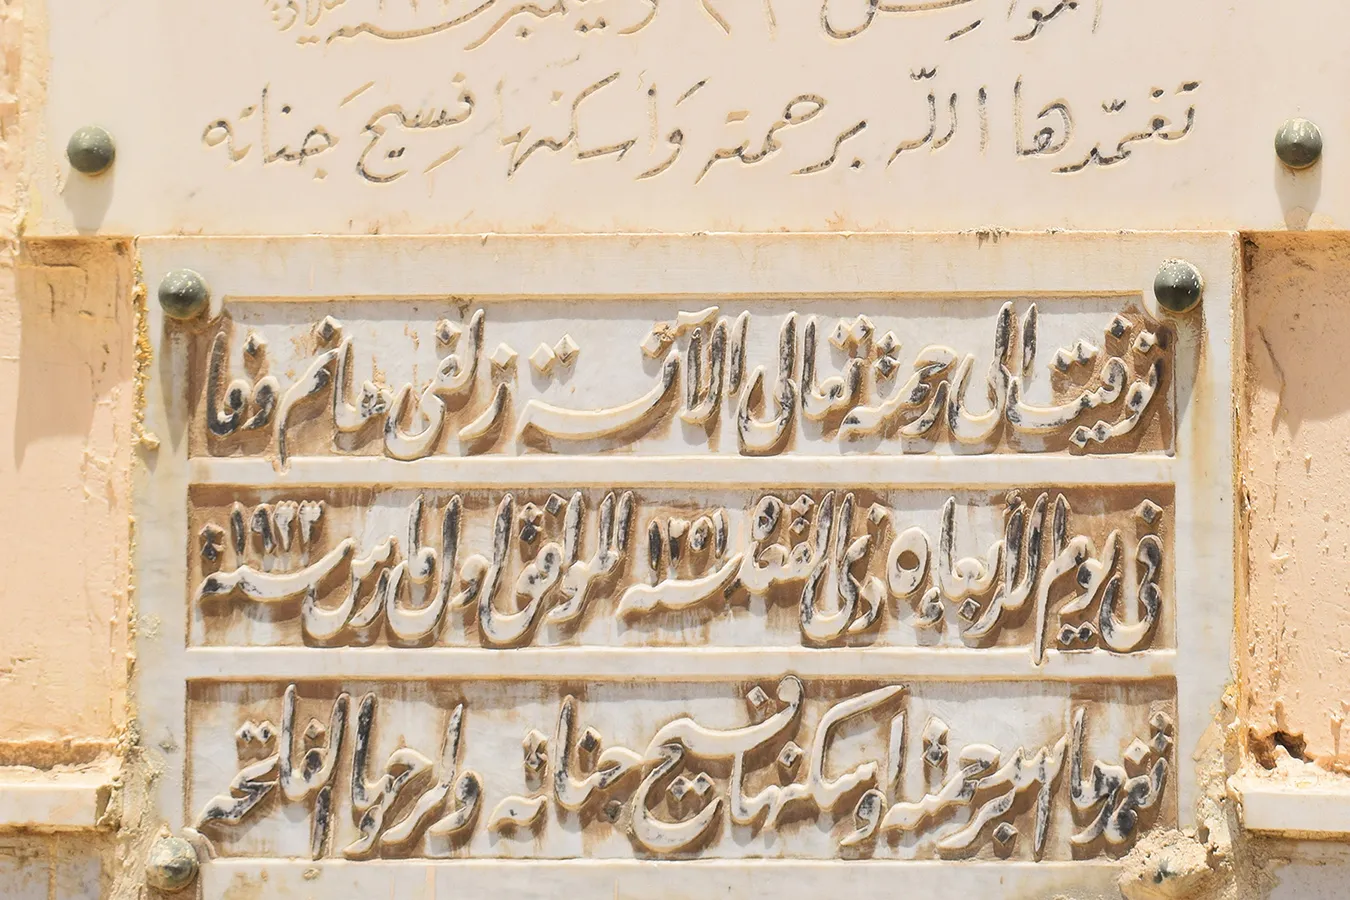 تغمّدها اللّه برحمته وأسكنها فسيح جناته
توفيت الى رحمة تعالى الآنسة زلفى هانم وفا
في يوم الأربعاء ٥ ذي القعدة سنة ١٣٥١ الموافق اول مارس سنة ١٩٣٣
تغمدها الله برحمته واسكنها فسيح جناته ولروحها الفاتحة